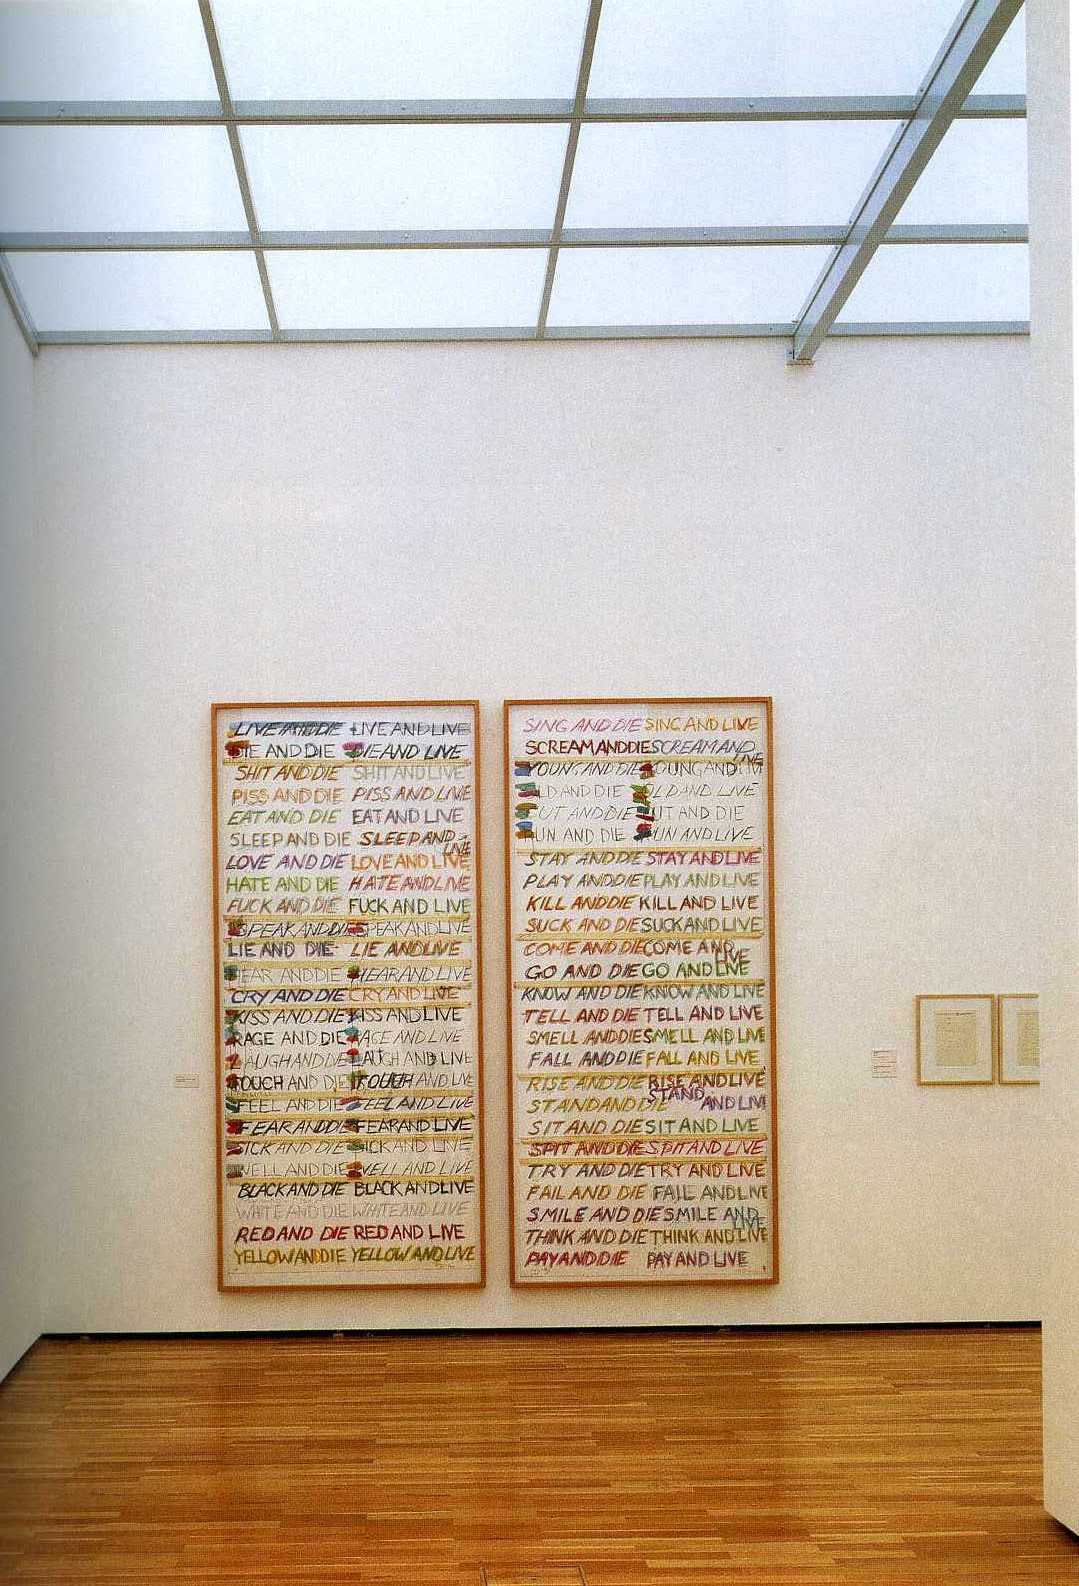 LIVE AND DIE LIVE AND LIVE
DIE AND DIE DIE AND LIVE
SHIT AND DIE SHIT AND LIVE
PISS AND DIE PISS AND LIVE
EAT AND DIE EAT AND LIVE
SLEEP AND DIE SLEEP AND LIVE
LOVE AND DIE LOVE AND LIVE
HATE AND DIE HATE AND LIVE
FUCK AND DIE FUCK AND LIVE
SPEAK AND DIE SPEAK AND LIVE
LIE AND DIE LIE AND LIVE
HEAR AND DIE HEAR AND LIVE
CRY AND DIE CRY AND LIVE
KISS AND DIE KISS AND LIVE
RAGE AND DIE RAGE AND LIVE
LAUGH AND DIE LAUGH AND LIVE
TOUCH AND DIE TOUCH AND LIVE
FEEL AND DIE FEEL AND LIVE
FEAR AND DIE FEAR AND LIVE
SICK AND DIE SICK AND LIVE
WELL AND DIE WELL AND LIVE
BLACK AND DIE BLACK AND LIVE
WHITE AND DIE WHITE AND LIVE
RED AND DIE RED AND LIVE
YELLOW AND DIE YELLOW AND LIVE
SING AND DIE SING AND LIVE
SCREAM AND DIE SCREAM AND LIVE
YOUNG AND DIE YOUNG AND LIVE
OLD AND DIE OLD AND LIVE
CUT AND DIE CUT AND DIE
RUN AND DIE RUN AND LIVE
STAY AND DIE STAY AND LIVE
PLAY AND DIE PLAY AND LIVE
KILL AND DIE KILL AND LIVE
SUCK AND DIE SUCK AND LIVE
COME AND DIE COME AND LIVE
GO AND DIE GO AND LIVE
KNOW AND DIE KNOW AND LIVE
TELL AND DIE TELL AND LIVE
SMELL AND DIE SMELL AND LIVE
FALL AND DIE FALL AND LIVE
RISE AND DIE RISE AND LIVE
STAND AND DIE STAND AND LIVE
SIT AND DIE SIT AND LIVE
SPIT AND DIE SPIT AND LIVE
TRY AND DIE TRY AND LIVE
FAIL AND DIE FAIL AND LIVE
SMILE AND DIE SMILE AND LIVE
THINK AND DIE THINK AND LIVE
PAY AND DIE PAY AND LIVE